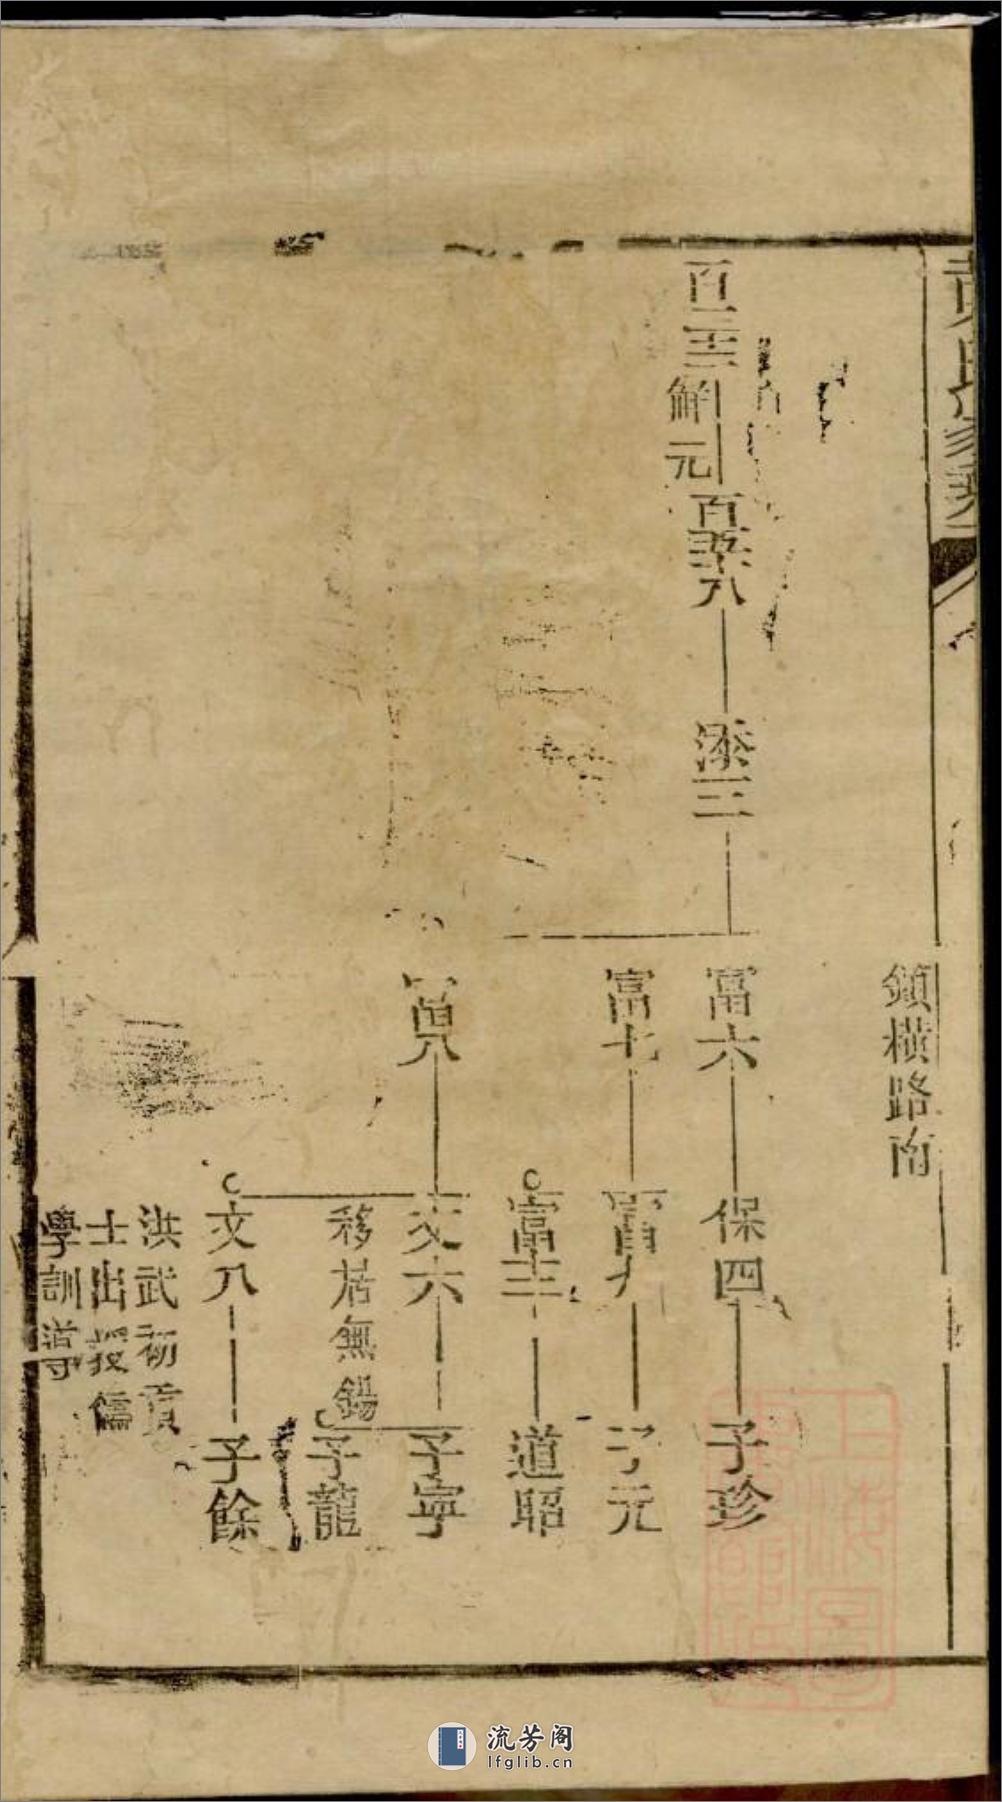 鎮橫路南
百三十三
解元
百五十八
添三
富六
保四
子珍
富七
富九
子元
富十三
道昭
萬八
文六
子寧
移居無錫
子龍
文八
子餘
洪武初貢
士出授儒
學訓導
流芳阁
lfglib.cn